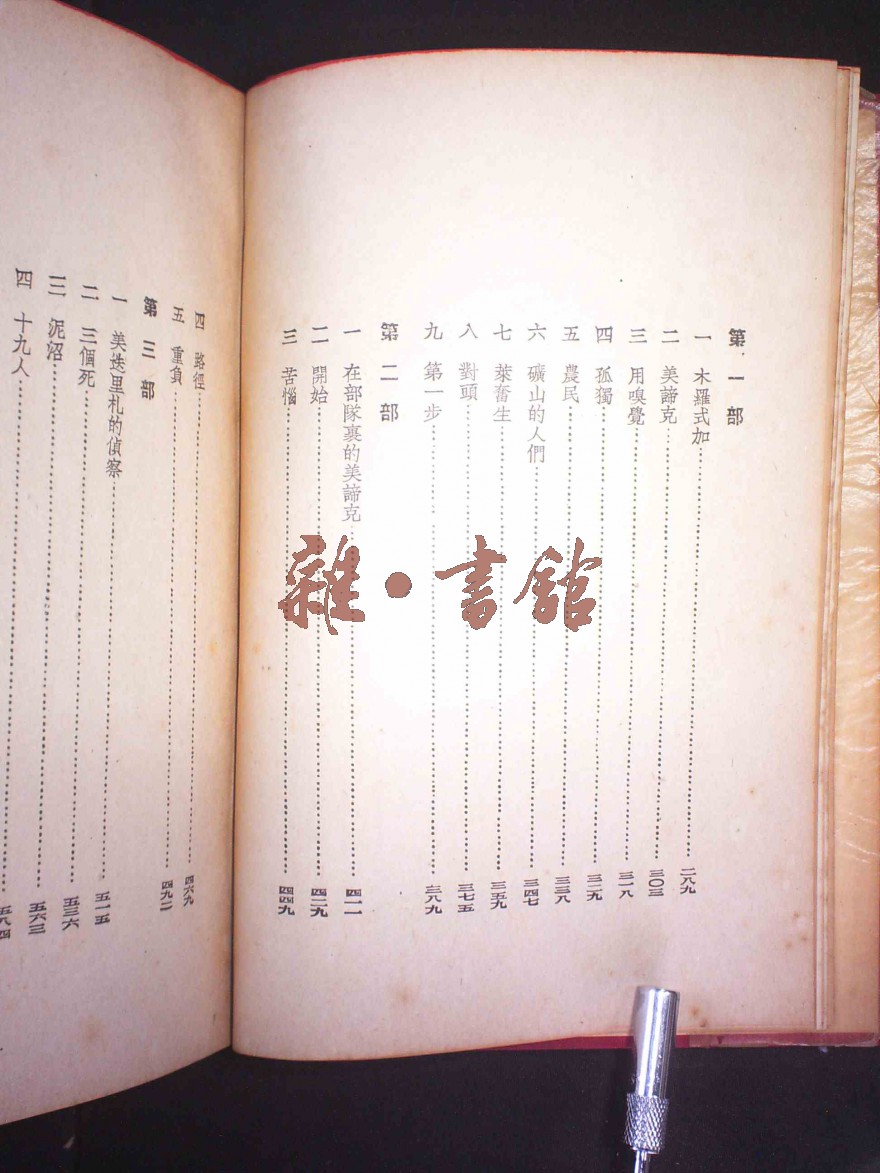 第一部
一 木羅式加 二八九
二 美諦克 三〇三
三 用嗅覺 三一八
四 孤獨 三二九
五 農民 三三八
六 礦山的人們 三四七
七 萊奮生 三五九
八 對頭 三七五
九 第一步 三八九
第二部
一 在部隊裏的美諦克 四一一
二 開始 四二九
三 苦惱 四四九
四 路徑 四六九
五 重負 四九二
第三部
一 美迭里札的偵察 五一五
二 三個死 五三六
三 泥沼 五六三
四 十九人 五八四
雜·書館